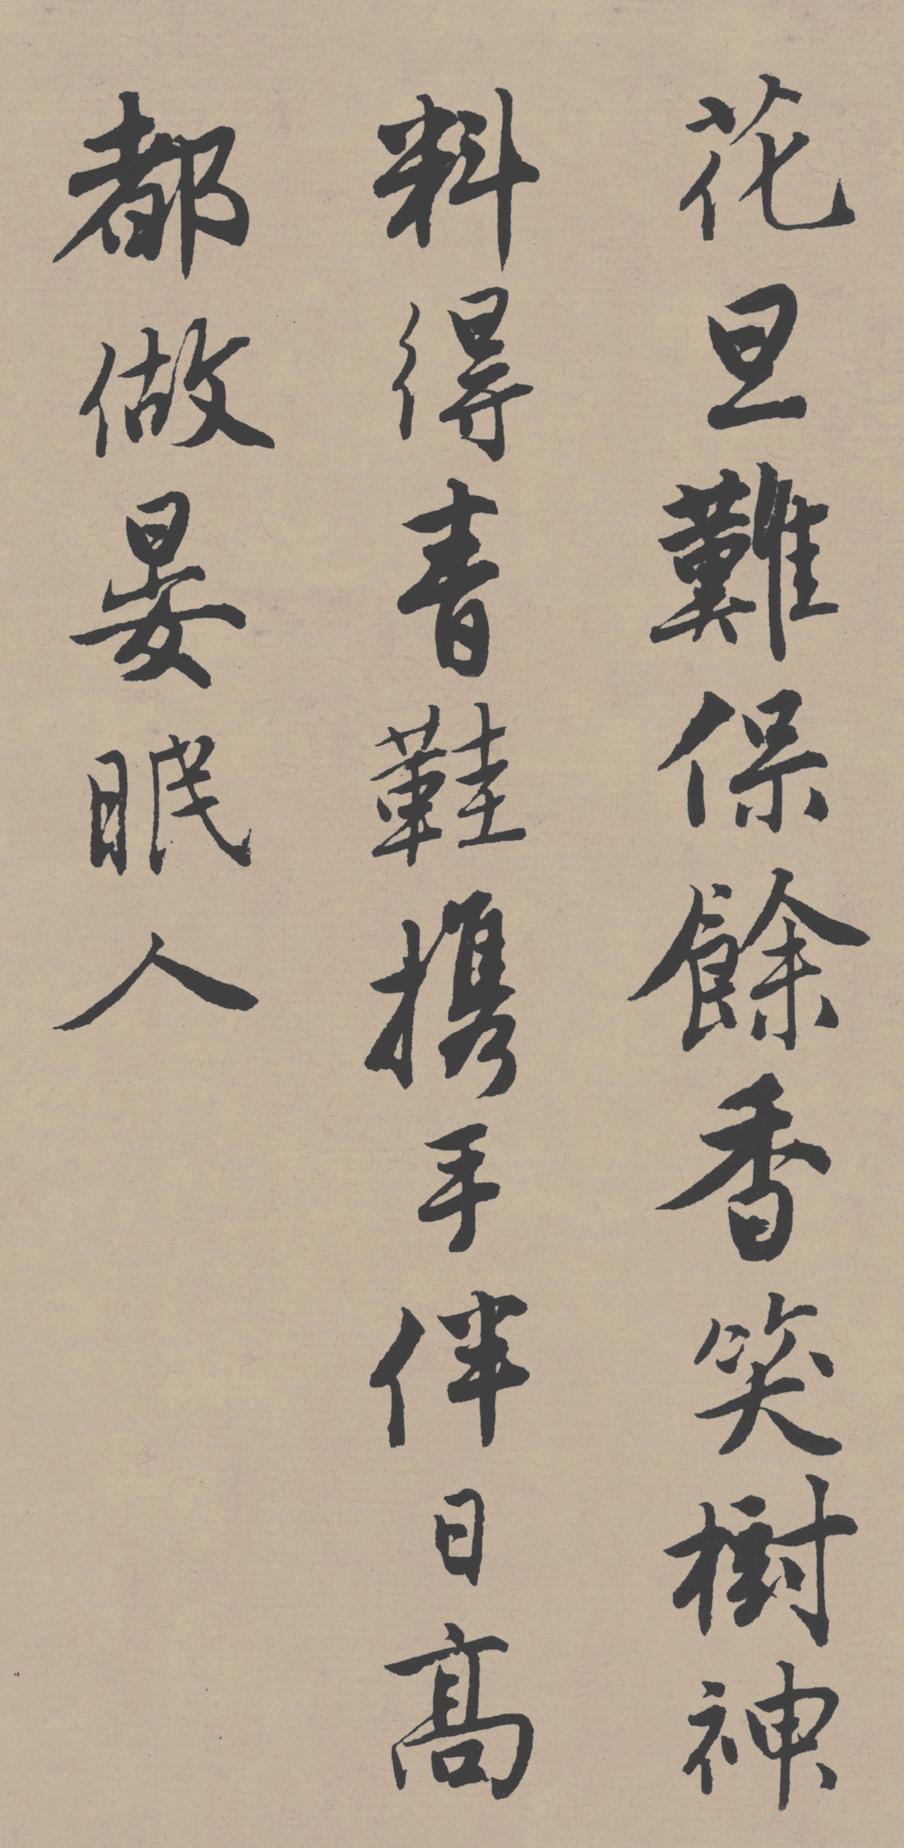 花旦難保餘香笑樹神
料得青鞋攜手伴日高
都做晏眠人